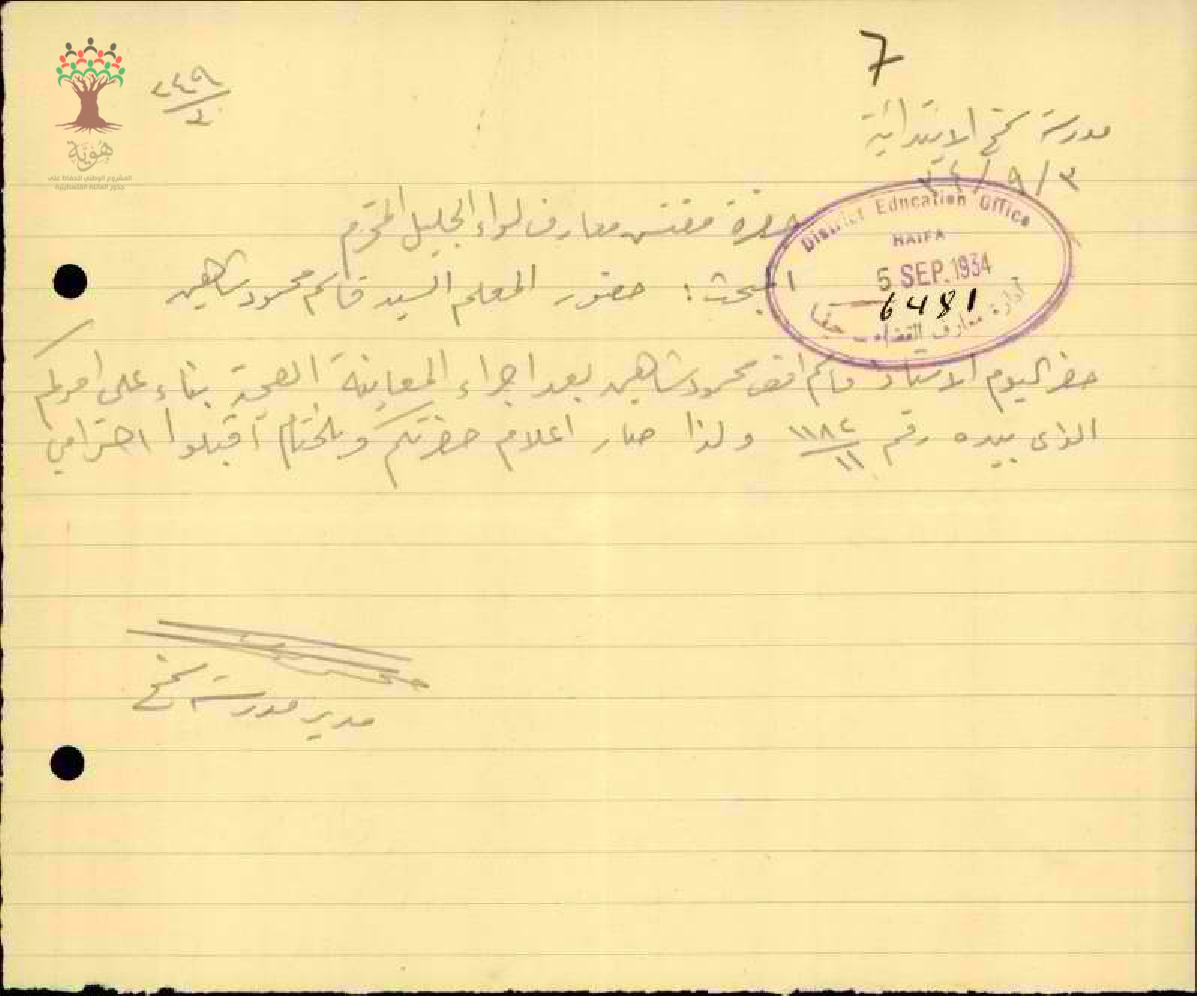 7
٢٤٩
٤
هوية
المشروع الوطني للحفاظ على
جذور العائلة الفلسطينية
مدرسة سمخ الابتدائية
٣٤/٩/٣
District Education Office
HAIFA
5 SEP. 1934
6481
ادارة معارف القضاء حيفا
حضرة مفتش معارف لواء الجليل المحترم
المبحث: حضور المعلم السيد قاسم محمود شاهين
حضر اليوم الاستاذ قاسم افندي محمود شاهين بعد اجراء المعاينة الصحية بناء على امركم
الذي بيده رقم ١١٨٢/١١ ولذا صار اعلام حضرتكم وبالختام اقبلوا احترامي
مدير مدرسة سمخ